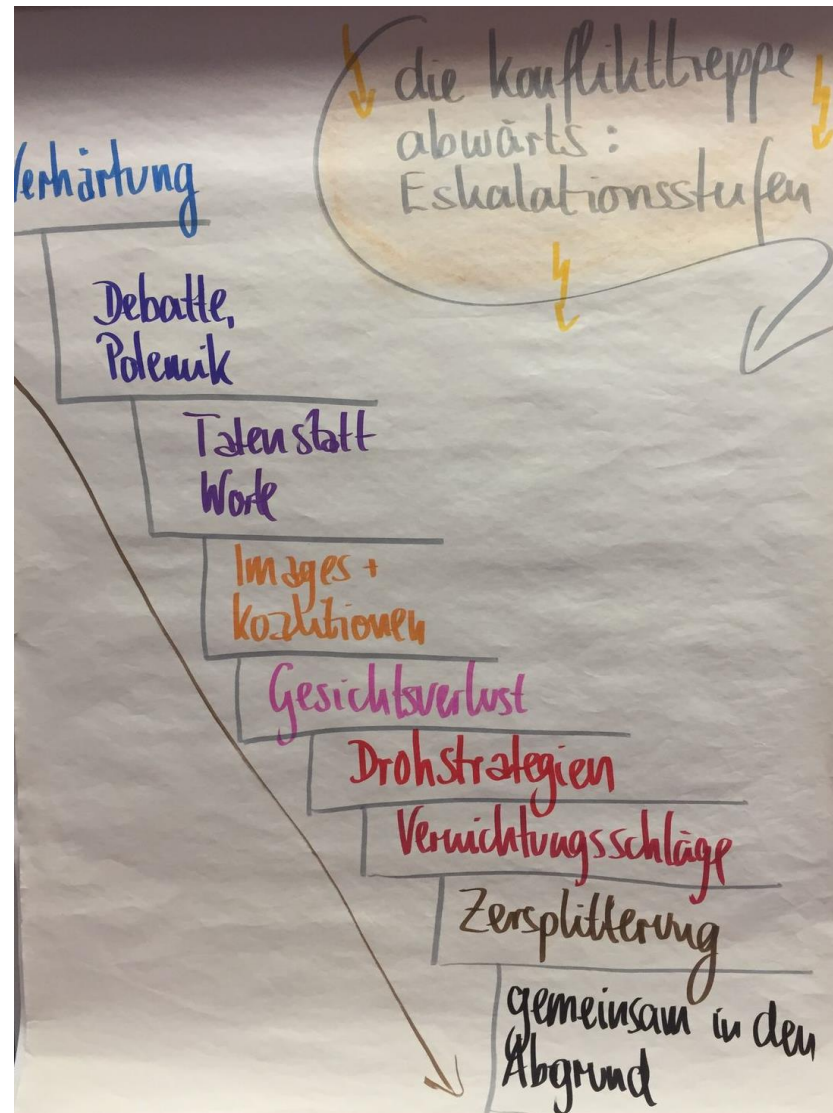 die Konflikttreppe
abwärts:
Eskalationsstufen
Verhärtung
Debatte,
Polemik
Taten statt
Worte
Images +
Koalitionen
Gesichtsverlust
Drohstrategien
Vernichtungsschläge
Zersplitterung
gemeinsam in den
Abgrund